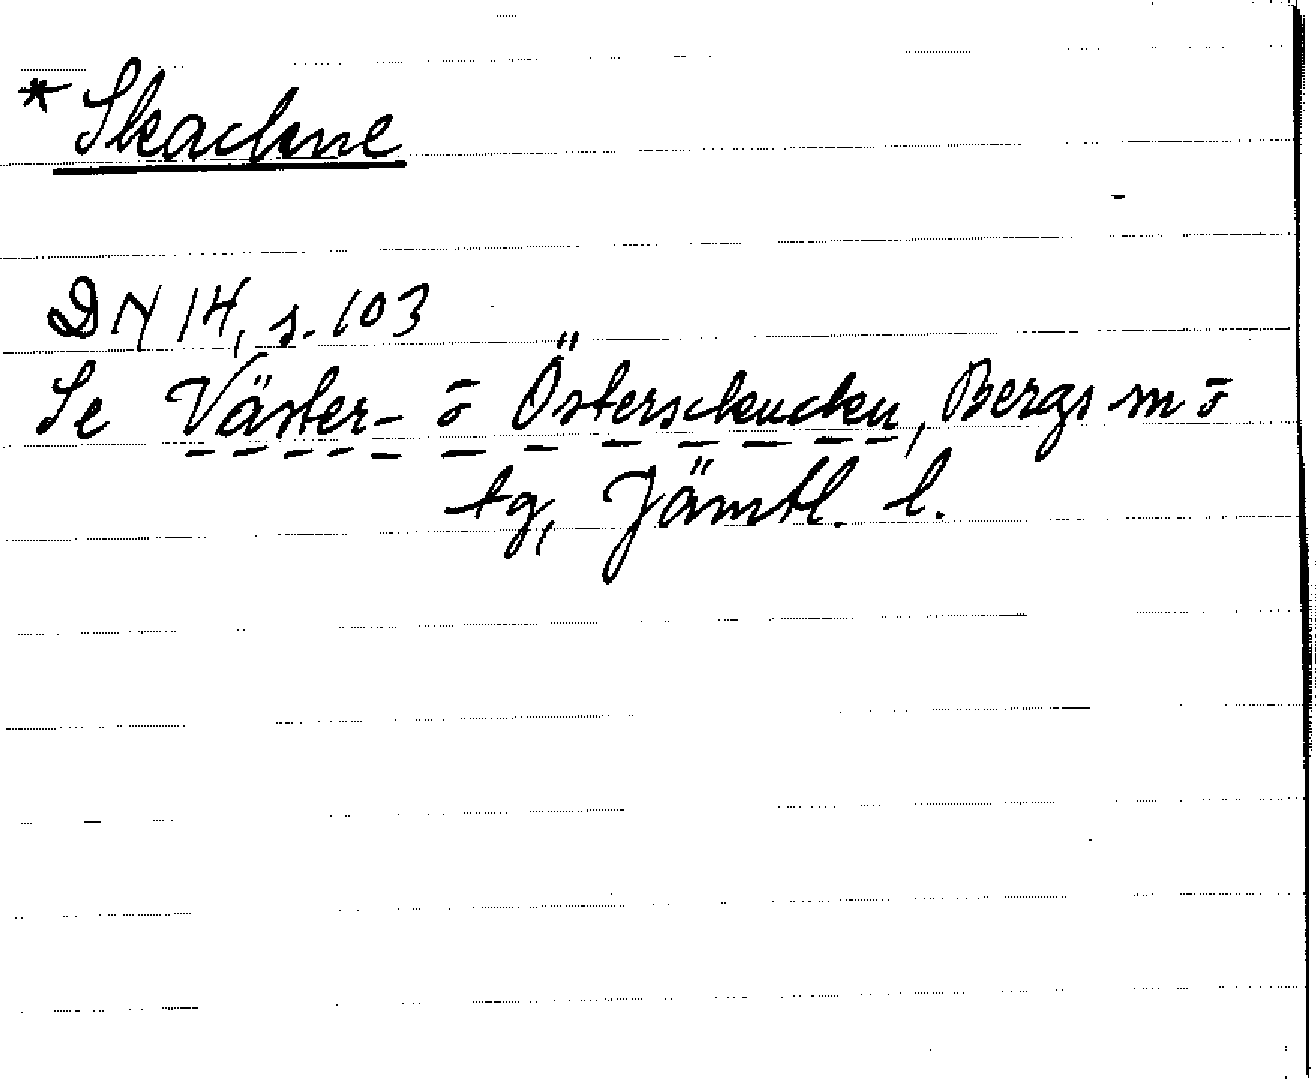 * Skackne
DN 14, s. 103
Se Väster- ō Österskucku, Bergs sn ō
tg, Jämtl. l.